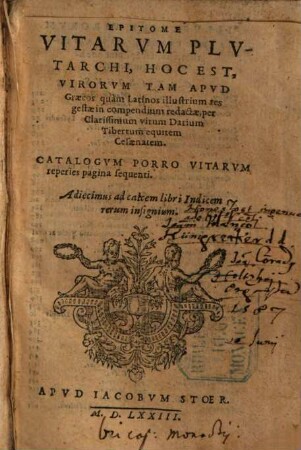 EPITOME
VITARVM PLV-
TARCHI, HOC EST,
VIRORVM TAM APVD
Græcos quàm Latinos illustrium res
gestæ in compendium redactæ, per
Clarissimum virum Darium
Tibertum equitem
Cesænatem.
CATALOGVM PORRO VITARVM
reperies pagina sequenti.
Adiecimus ad calcem libri Indicem
rerum insignium.
1587
Junij
APVD IACOBVM STOER.
M. D. LXXIII.